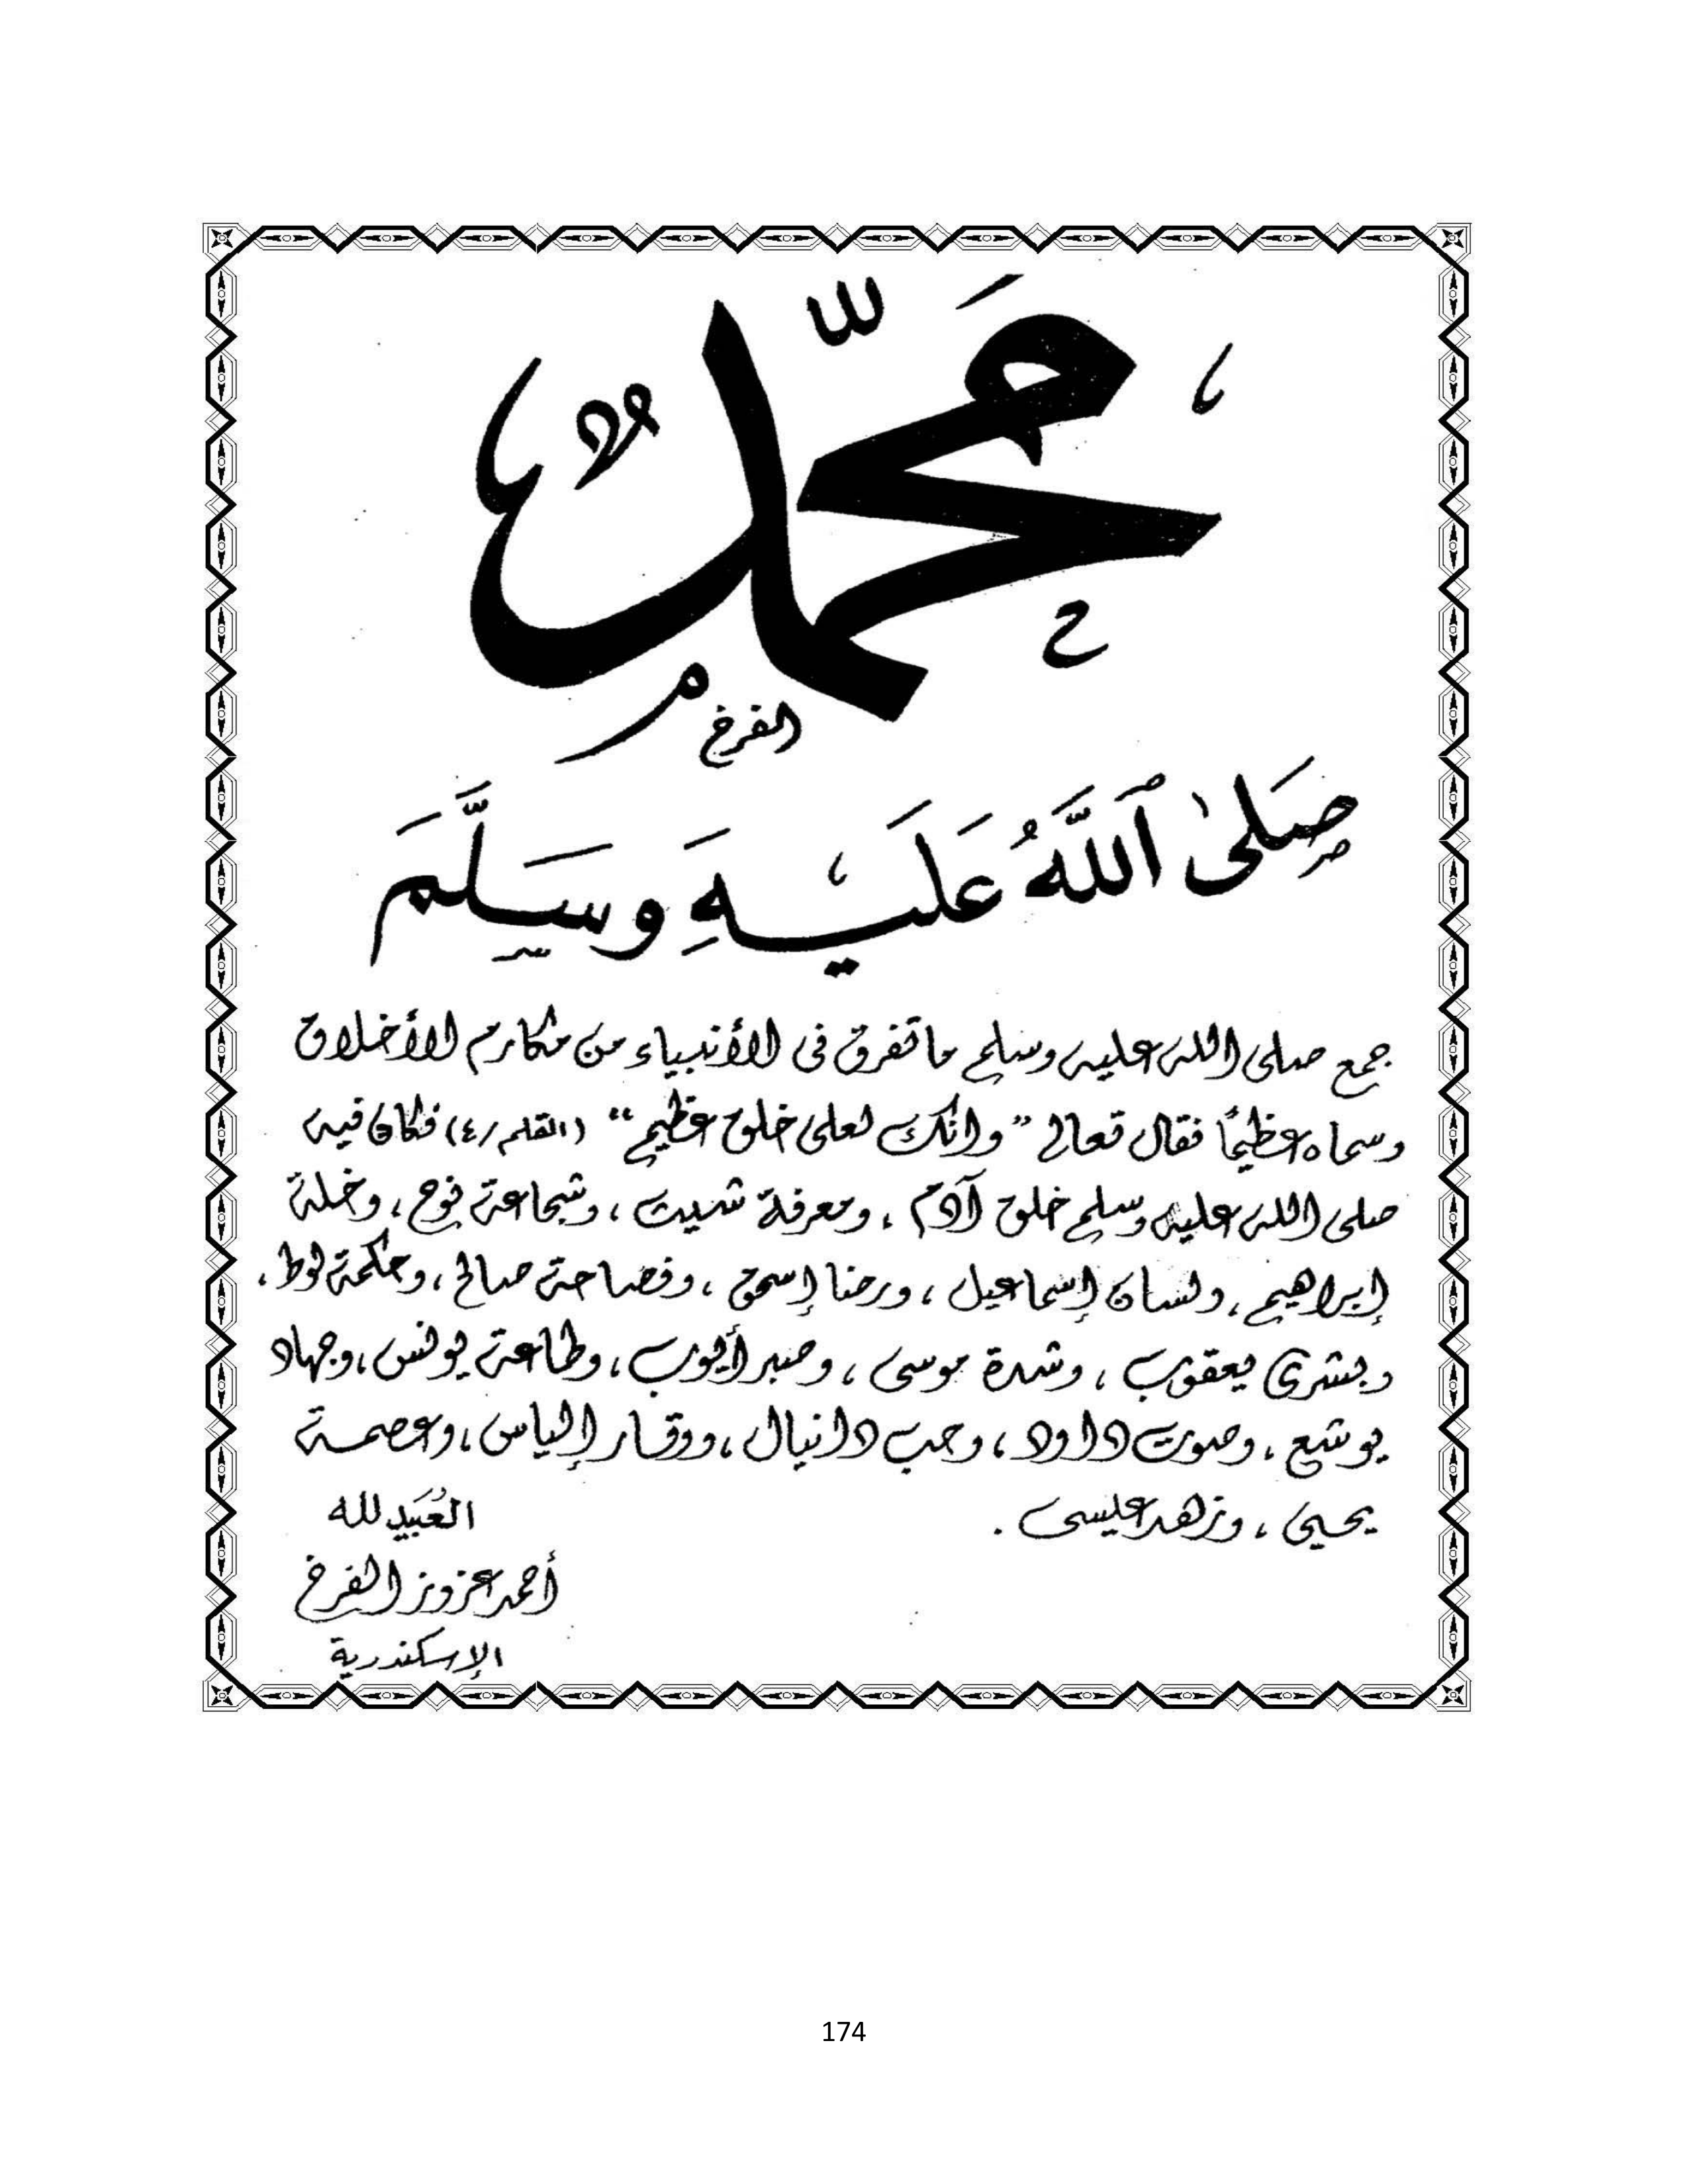 محمد
الفرخ
صَلىٰ ٱللَّهُ عَلَيْهِ وَسَلَّمَ
جمع صلى الله عليه وسلم ما تفرق فى الأنبياء من مكارم الأخلاق
وسماه عظيمًا فقال تعالى "وانك لعلى خلق عظيم" (القلم/٤) فكان فيه
صلى الله عليه وسلم خلق آدم ، ومعرفة شيث ، وشجاعة نوح ، وخلة
إبراهيم ، ولسان إسماعيل ، ورضا إسحق ، وفصاحة صالح ، وحكمة لوط ،
وبشرى يعقوب ، وشدة موسى ، وصبر أيوب ، وطاعة يونس ، وجهاد
يوشع ، وصوت داود ، وحب دانيال ، ووقار إلياس ، وعصمة
يحيى ، وزهد عيسى .
العُبَيد لله
أحمد عزوز الفرخ
الإسكندرية
174